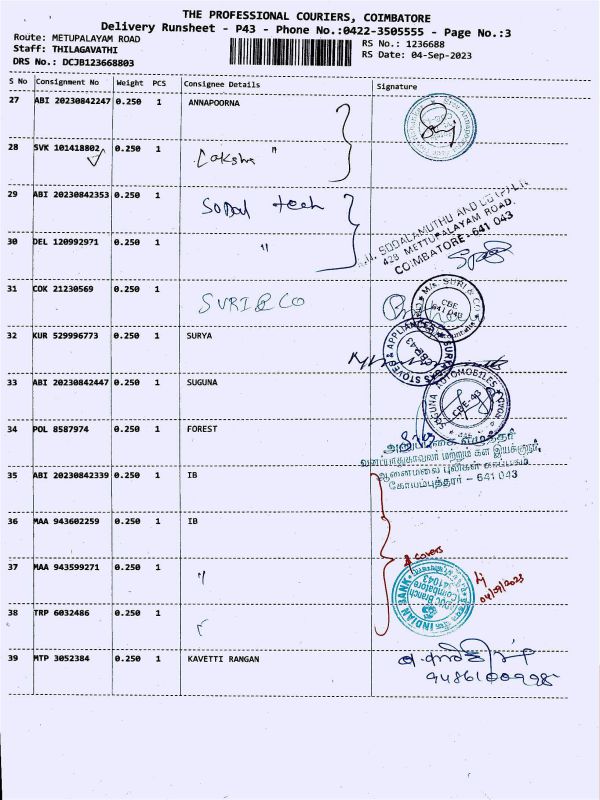 THE PROFESSIONAL COURIERS, COIMBATORE
Delivery Runsheet - P43 - Phone No.:0422-3505555 - Page No.:3
Route: METUPALAYAM ROAD
RS No.: 1236688
Staff: THILAGAVATHI
RS Date: 04-Sep-2023
DRS No.: DCJB123668803
S No Consignment No Weight PCS Consignee Details Signature
27 ABI 20230842247 0.250 1 ANNAPOORNA
28 SVK 101418802 0.250 1 "
29 ABI 20230842353 0.250 1 Sodal tech
30 DEL 120992971 0.250 1 "
SODALAMUTHU AND CO (P) LTD
428, METTUPALAYAM ROAD,
COIMBATORE - 641 043
31 COK 21230569 0.250 1 SURI & CO
M/s. SURI & CO
CBE
641 043
32 KUR 529996773 0.250 1 SURYA
SURYA GAS STOVES & APPLIANCES
CBE-43
33 ABI 20230842447 0.250 1 SUGUNA
SUGUNA AUTOMOBILES
CBE-43
34 POL 8587974 0.250 1 FOREST
வனப்பாதுகாவலர் மற்றும் கள இயக்குநர்,
ஆனைமலை புலிகள் காப்பகம்
கோயம்புத்தூர் - 641 043
35 ABI 20230842339 0.250 1 IB
36 MAA 943602259 0.250 1 IB
37 MAA 943599271 0.250 1 "
4 covers
INDIAN BANK
Branch
Coimbatore
641043
04/09/2023
38 TRP 6032486 0.250 1
39 MTP 3052384 0.250 1 KAVETTI RANGAN